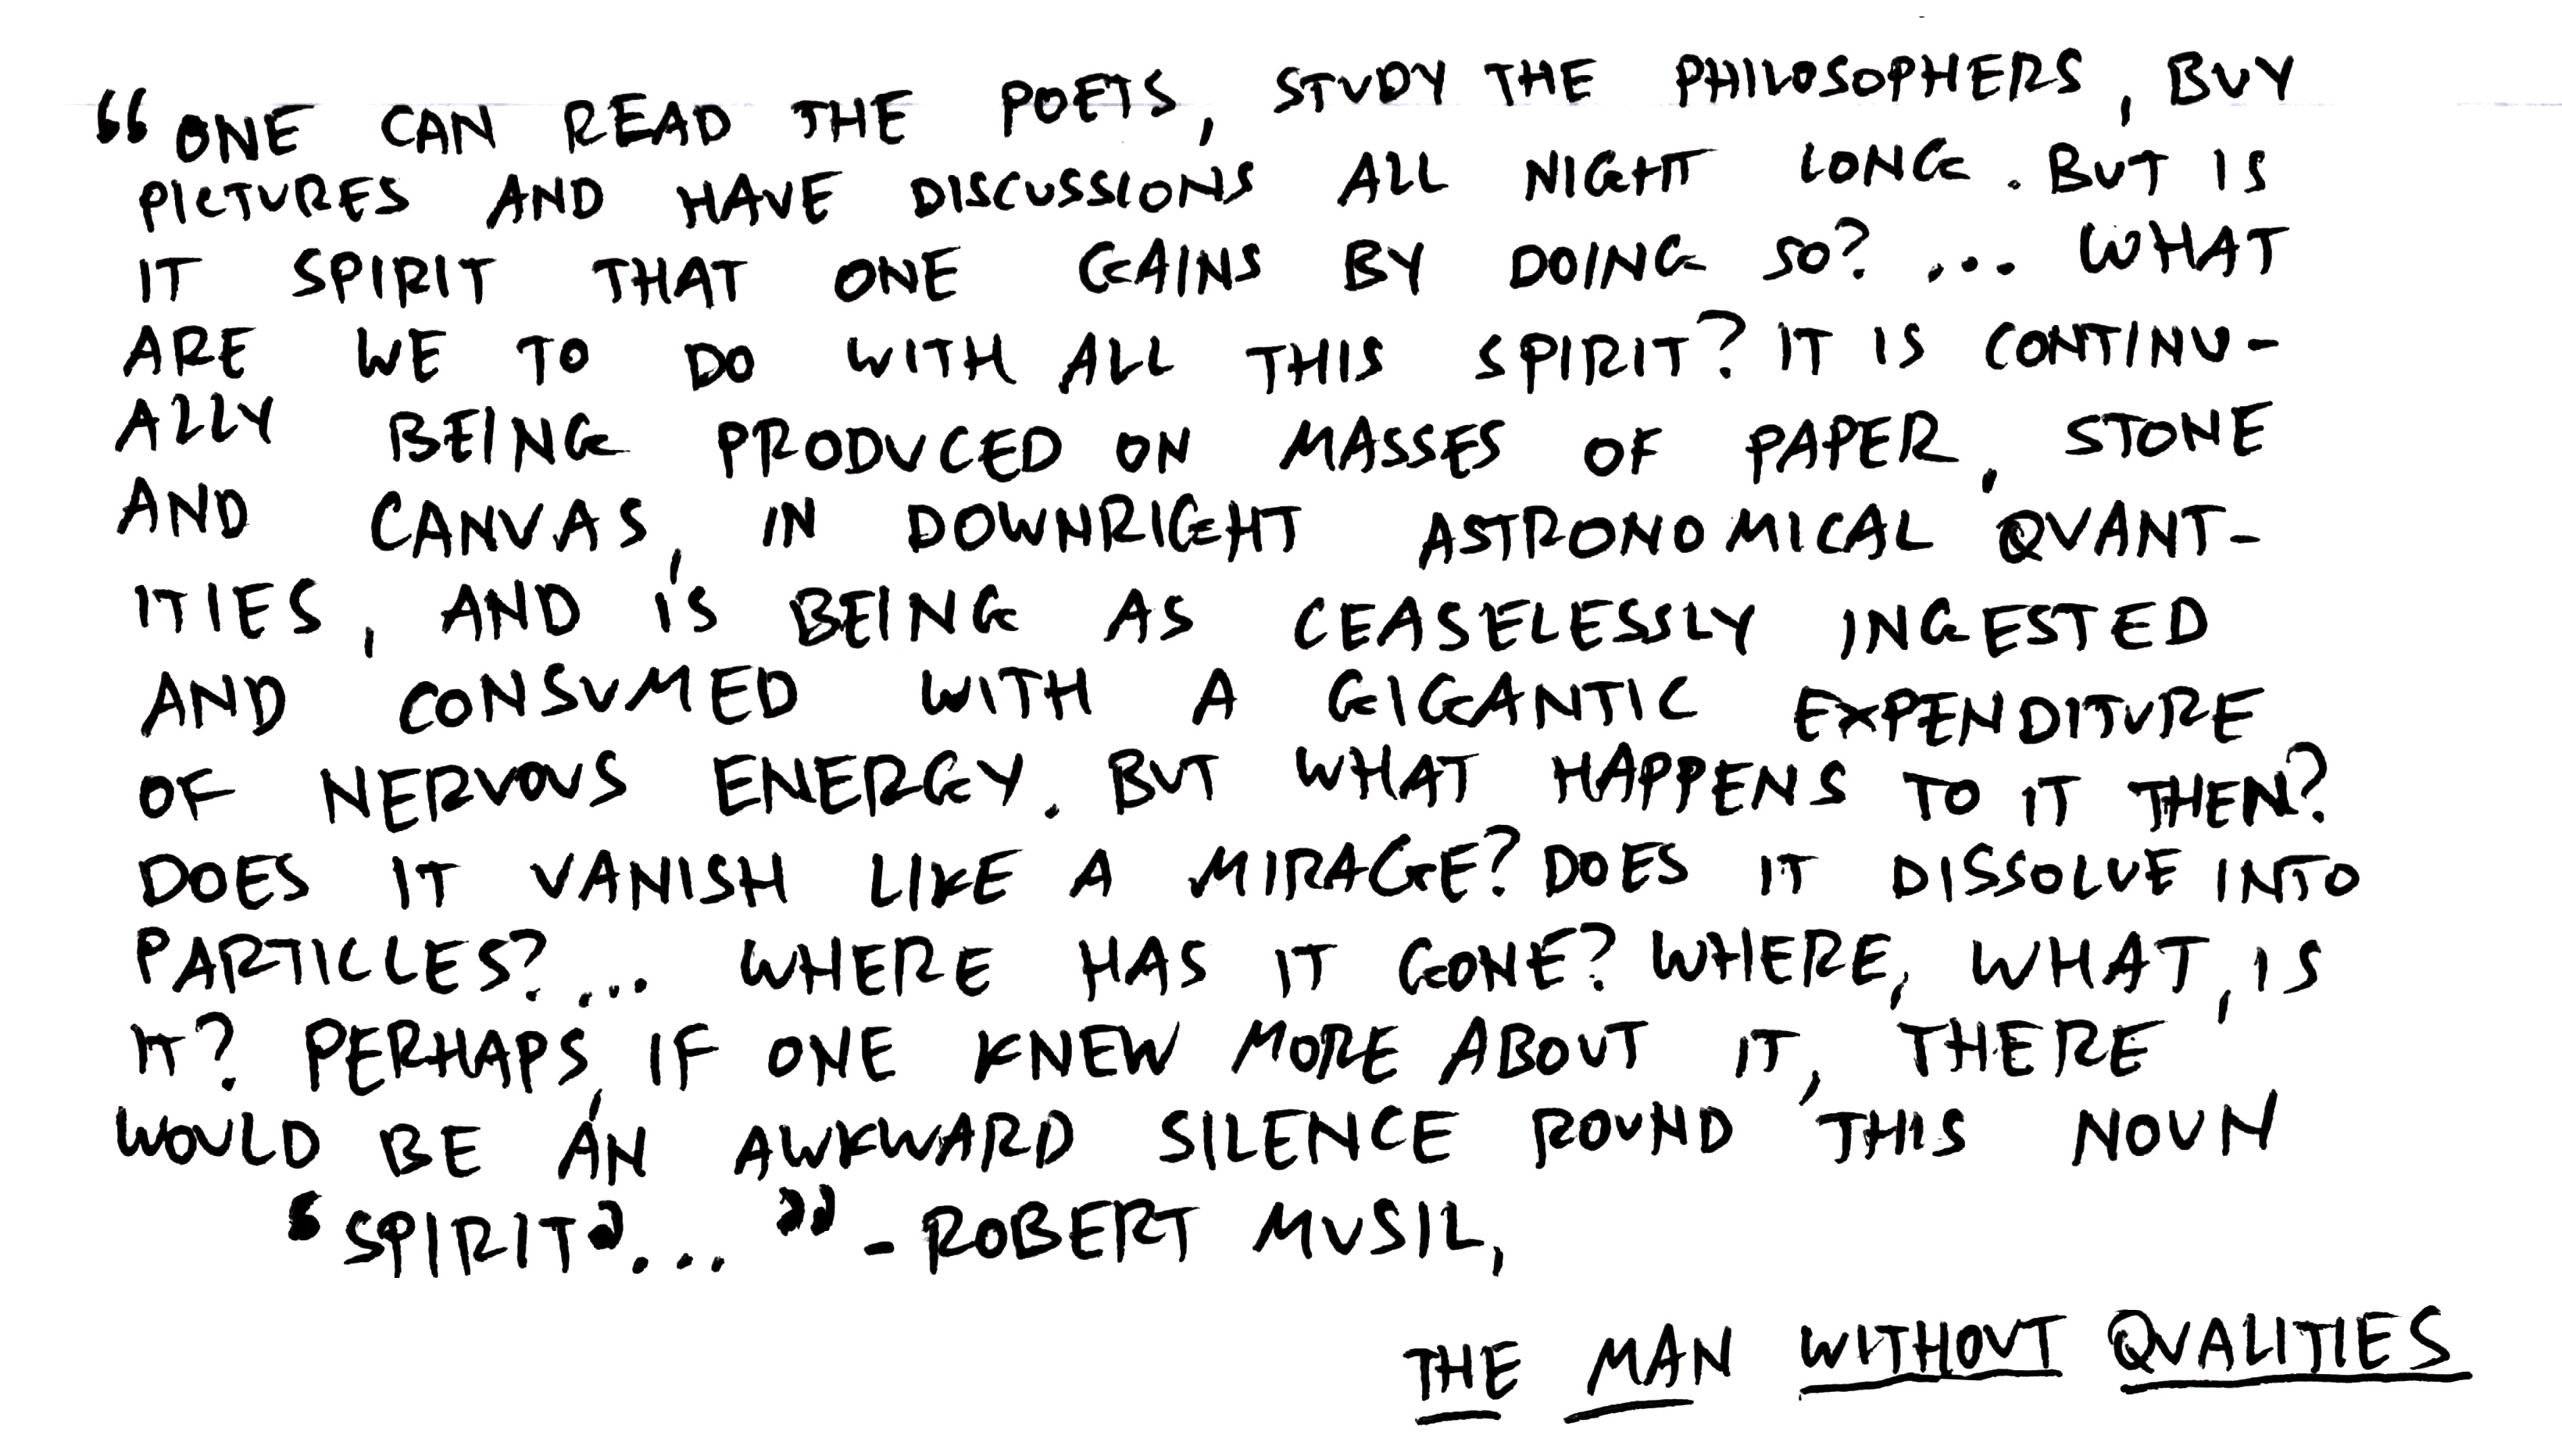 “ONE CAN READ THE POETS, STUDY THE PHILOSOPHERS, BUY
PICTURES AND HAVE DISCUSSIONS ALL NIGHT LONG. BUT IS
IT SPIRIT THAT ONE GAINS BY DOING SO? ... WHAT
ARE WE TO DO WITH ALL THIS SPIRIT? IT IS CONTINU-
ALLY BEING PRODUCED ON MASSES OF PAPER, STONE
AND CANVAS, IN DOWNRIGHT ASTRONOMICAL QUANT-
ITIES, AND IS BEING AS CEASELESSLY INGESTED
AND CONSUMED WITH A GIGANTIC EXPENDITURE
OF NERVOUS ENERGY. BUT WHAT HAPPENS TO IT THEN?
DOES IT VANISH LIKE A MIRAGE? DOES IT DISSOLVE INTO
PARTICLES? ... WHERE HAS IT GONE? WHERE, WHAT, IS
IT? PERHAPS, IF ONE KNEW MORE ABOUT IT, THERE
WOULD BE AN AWKWARD SILENCE ROUND THIS NOUN
‘SPIRIT’... ” - ROBERT MUSIL,
THE MAN WITHOUT QUALITIES